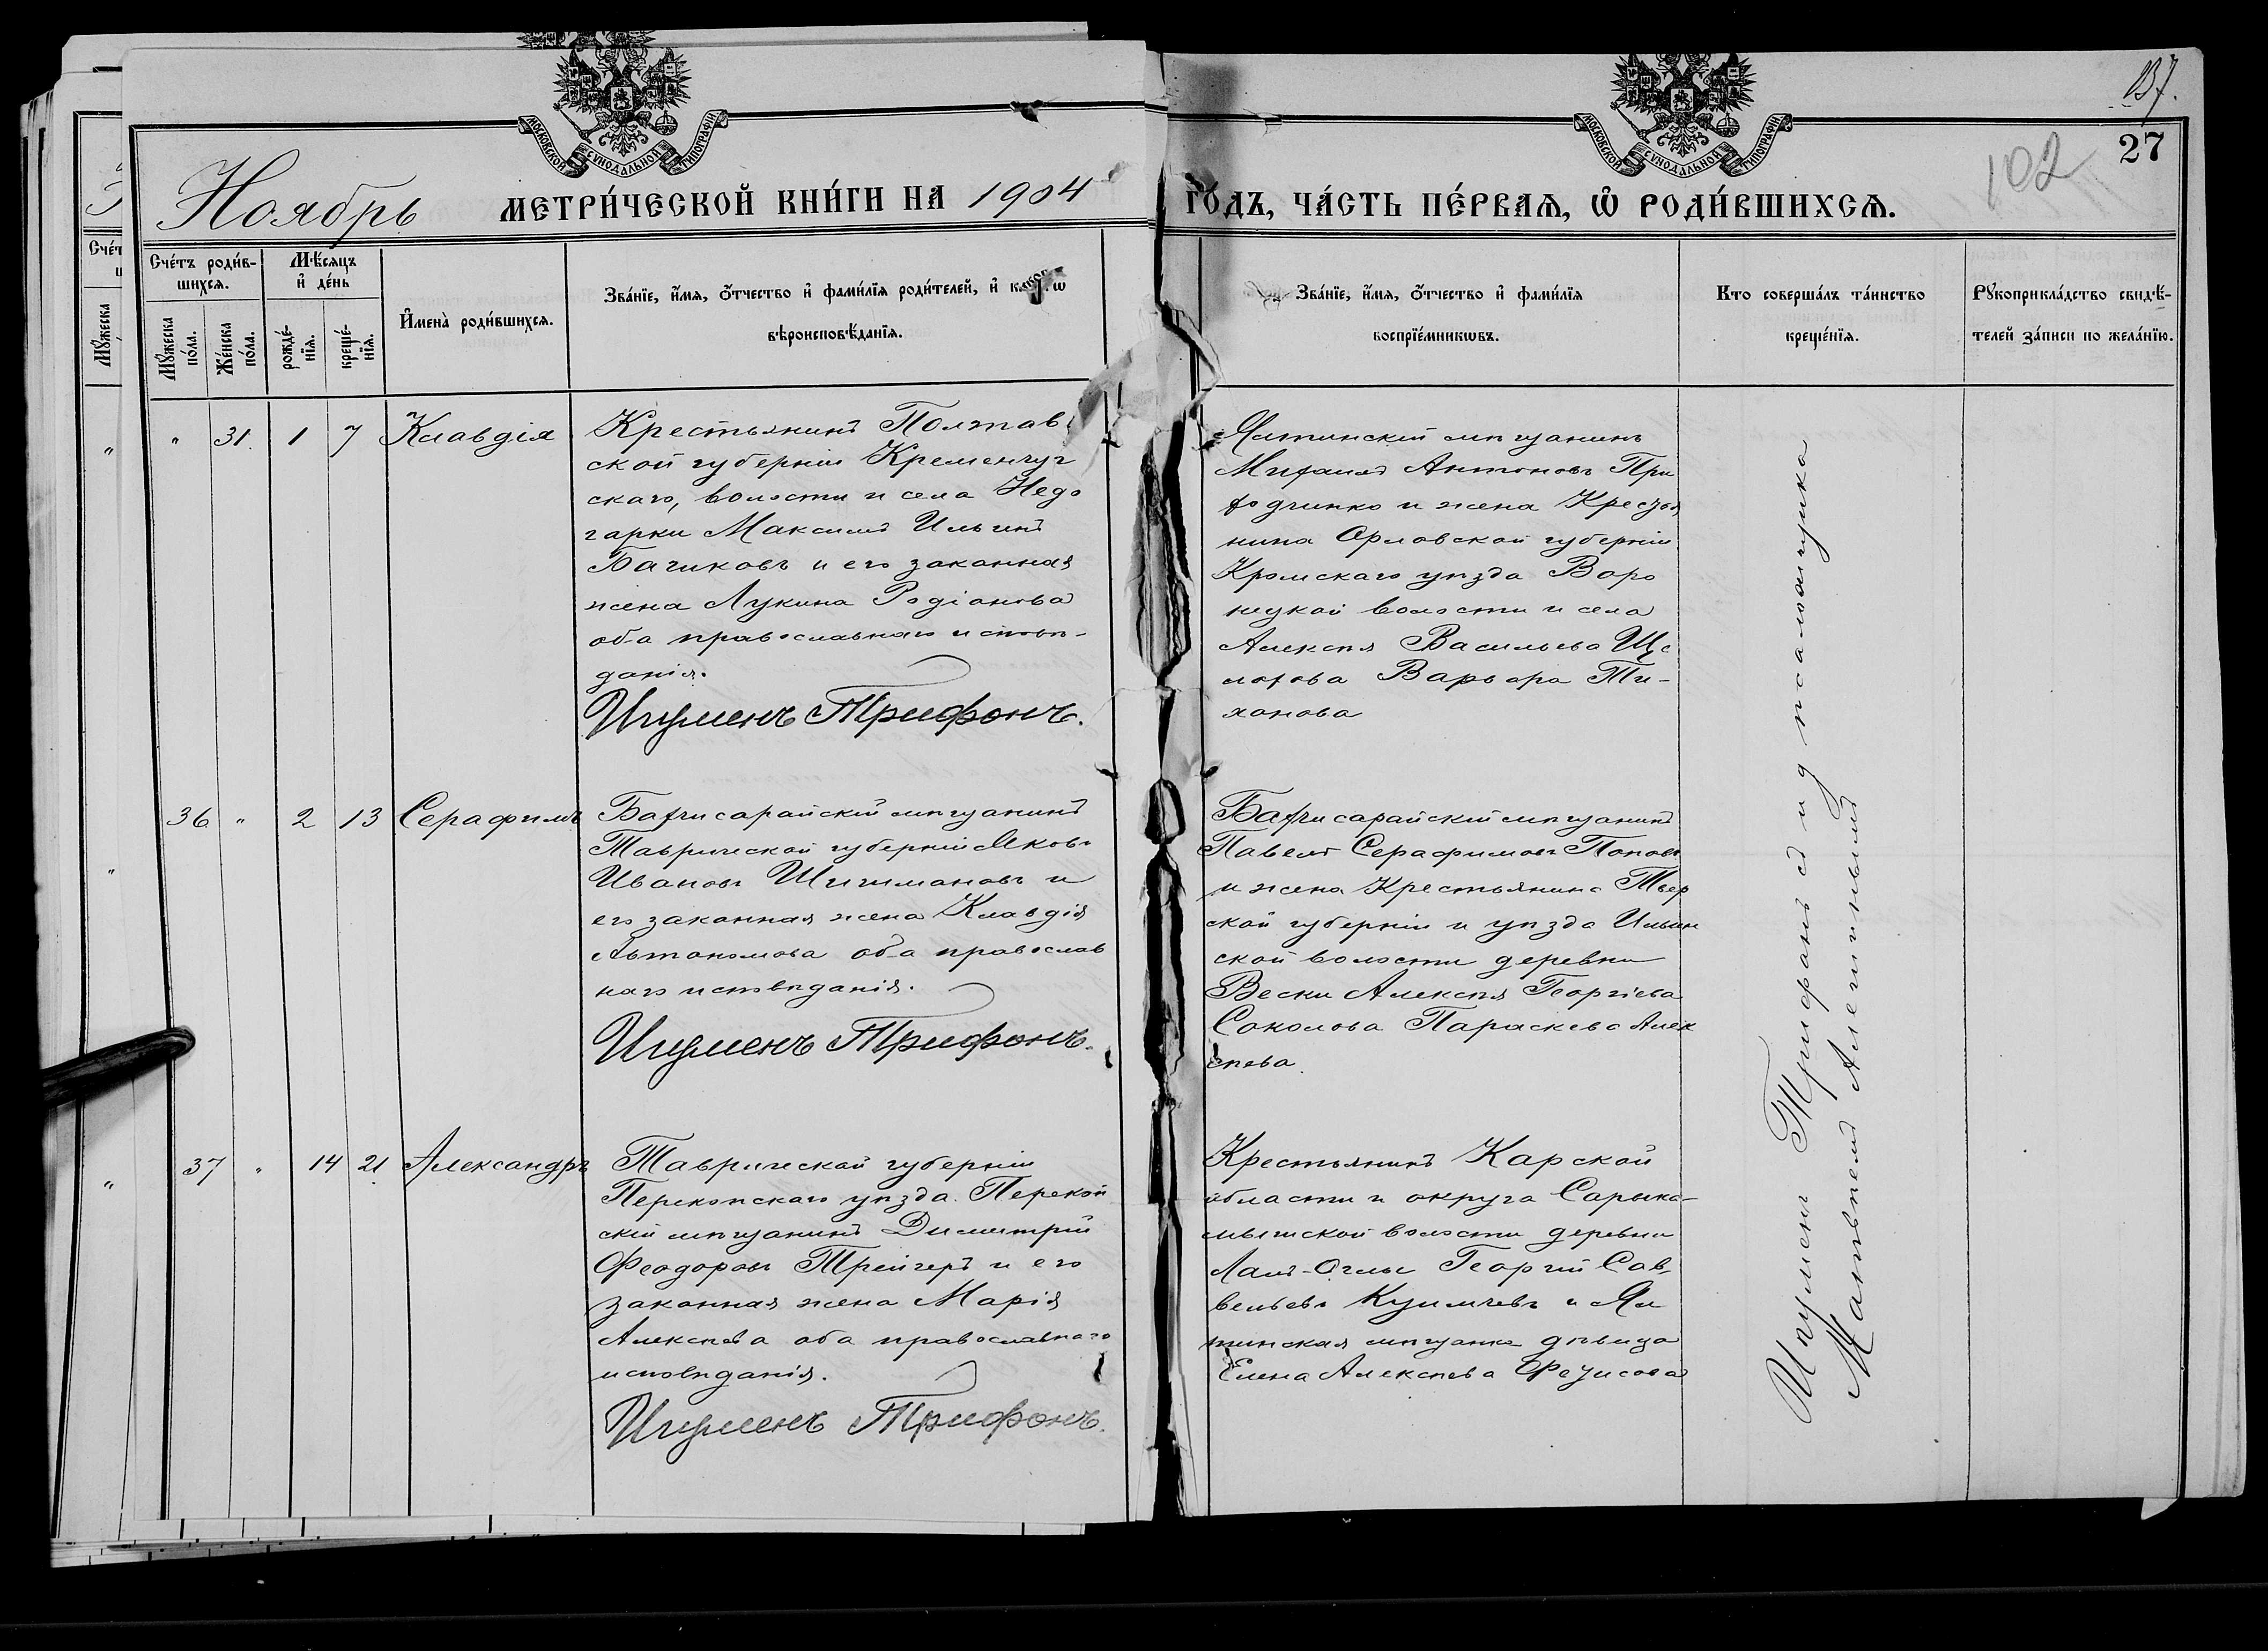 137.
27
102
МОСКОВСКОЙ СѴНОДАЛЬНОЙ ТИПОГРАФІИ
МОСКОВСКОЙ СѴНОДАЛЬНОЙ ТИПОГРАФІИ
Ноябрь МЕТРИ́ЧЕСКОЙ КНИ́ГИ НА 1904 ГО́ДЪ, ЧА́СТЬ ПЕ́РВАѦ, Ѡ҆ РОДИ́ВШИХСѦ.
Сче́тъ роди́в-
шихсѧ.
Мꙋ́жеска
по́ла.
Же́нска
по́ла.
Мѣ́сѧцъ
и҆ де́нь
рожде́-
нїѧ.
креще́-
нїѧ.
И҆мена̀ роди́вшихсѧ.
Зва́нїе, и҆́мѧ, ѻ҆́тчество и҆ фами́лїѧ роди́телей, и҆
вѣроисповѣ́данїѧ.
Зва́нїе, и҆́мѧ, ѻ҆́тчество и҆ фами́лїѧ
воспрїе́мникѡвъ.
Кто соверша́лъ та́инство
креще́нїѧ.
Рꙋкоприкла́дство свидѣ́-
телей за́писи по жела́нїю.
" 31. 1 7 Клавдія
Крестьянинъ Полтав
ской губерніи Кременчуг
скаго, волости и села Недо
гарки Максимъ Ильинъ
Багиковъ и его законная
жена Лукина Родіонова
оба православнаго исповѣ-
данія.
Игуменъ Трифонъ.
Ялтинскій мѣщанинъ
Михаилъ Антоновъ При
ходченко и жена Кресть
нина Орловской губерніи
Кромскаго уѣзда Воро
нецкой волости и села
Алексѣя Васильева Ще
лохова Варвара Ти-
ханова
36 " 2 13 Серафимъ
Бахчисарайскій мѣщанинъ
Таврической губерніи Яковъ
Ивановъ Шишмановъ и
его законная жена Клавдія
Автономова оба православ
наго исповѣданія.
Игуменъ Трифонъ.
Бахчисарайскій мѣщанинъ
Павелъ Серафимовъ Поповъ
и жена Крестьянина Твер
ской губерніи и уѣзда Ильин
ской волости деревни
Вески Алексѣя Георгіева
Соколова Параскева Алек
сѣева.
37 " 14 21. Александръ
Таврической губерніи
Перекопскаго уѣзда. Перекоп
скій мѣщанинъ Димитрій
Феодоровъ Трейгеръ и его
законная жена Марія
Алексѣева оба православнаго
исповѣданія.
Игуменъ Трифонъ.
Крестьянинъ Карской
области и округа Сарыка-
мышской волости деревни
Георгій Сав-
вельевъ и Ял
тинская мѣщанка дѣвица
Елена Алексѣева
Игуменъ Трифонъ съ и д псаломщика
Матвѣемъ